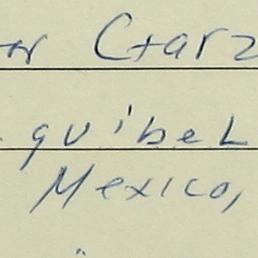 or Garz
quibel
Mexico,